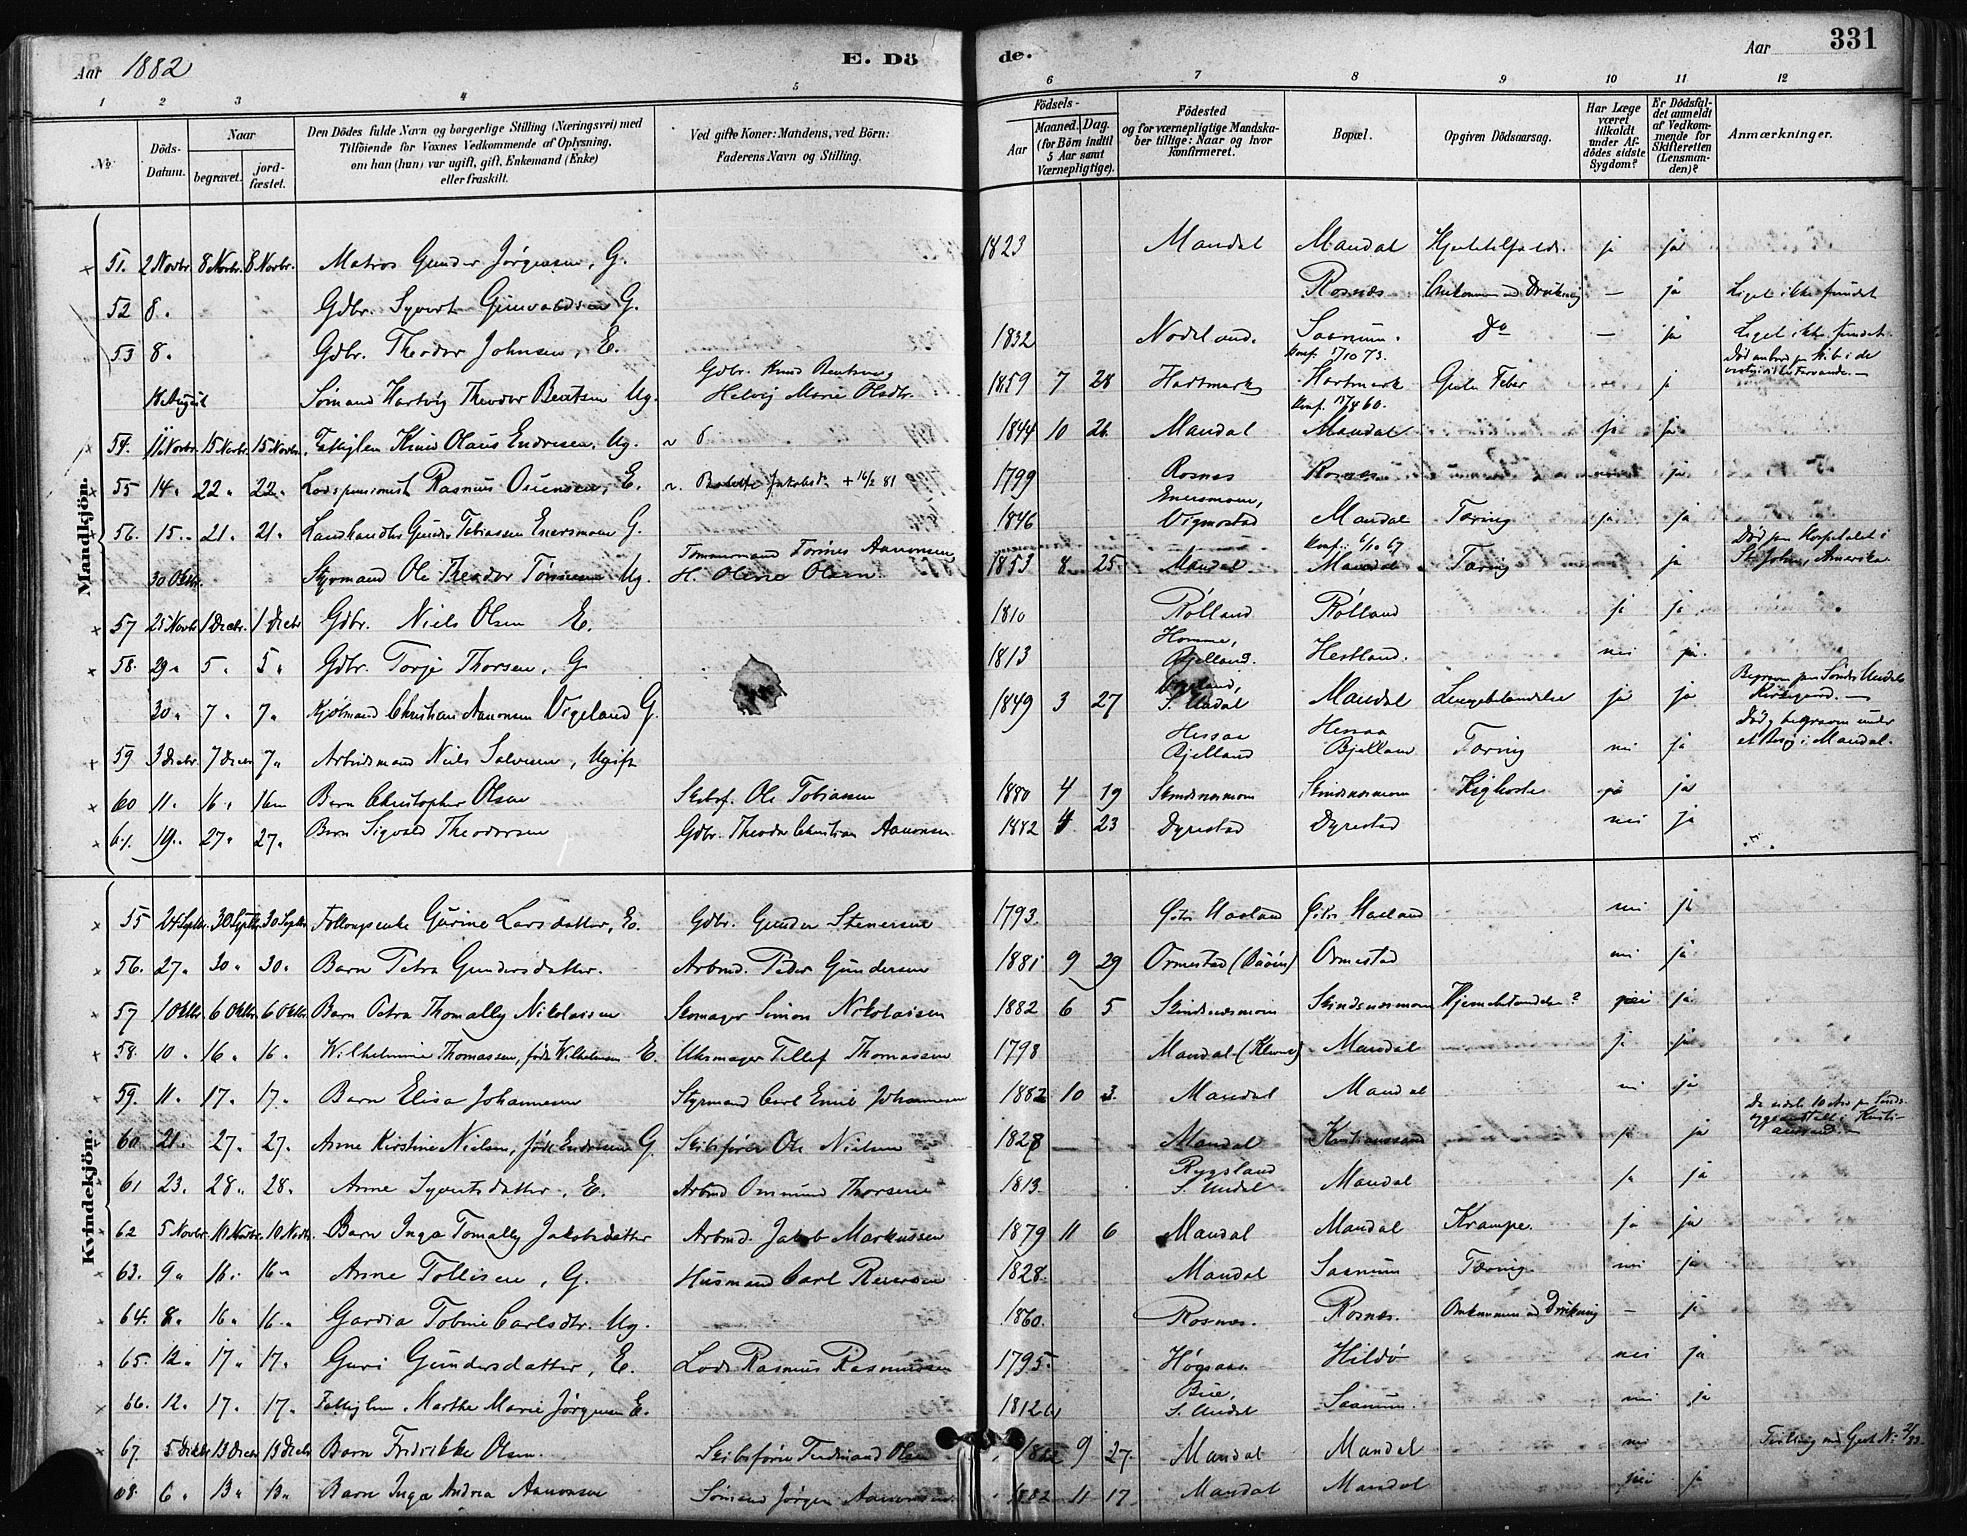 Aar 1882
E. Döde.
Aar
331
1 2 3 4 5 6 7 8 9 10 11 12
No.
Döds-Datum.
Naar
begravet.
jordfæstet.
Den Dödes fulde Navn og borgerlige Stilling (Næringsvei) med
Tilföiende for Voxnes Vedkommende af Oplysning,
om han (hun) var ugift, gift, Enkemand (Enke)
eller fraskilt.
Ved gifte Koner: Mandens, ved Börn:
Faderens Navn og Stilling.
Födsels-
Aar
Maaned. Dag.
(for Börn indtil
5 Aar samt
Værnepligtige).
Födested
og for værnepligtige Mandskaber tillige: Naar og hvor
konfirmeret.
Bopæl.
Opgiven Dödsaarsag.
Har Læge
været
tilkaldt
under Afdödes sidste
Sygdom?
Er Dödsfaldet anmeldt
af Vedkommende for
Skifteretten
(Lensmanden)?
Anmærkninger.
Mandkjön.
51. 2 Novbr. 8 Novbr. 8 Novbr. Matros Gunder Jörgensen, G. 1823 Mandal Mandal ja ja
52 8. Gdbr. Syvert Gunvaldsen G. Rosnæs Omkommen ved Drukning — ja Liget ikke fundet
53 8. Gdbr. Theodor Johnsen, E. 1832 Nodeland. Saanum. Do — ja Liget ikke fundet.
18 August Sömand Hartvig Theodor Bentsen Ug. Gdbr. Knud Bentsen, Helvig Marie Olsdtr. 1859 7 28 Hartmark Konf. 5/10 73. Hartmark Gule Feber — ja
54. 11 Novbr. 15 Novbr. 15 Novbr. Fattiglem Knud Olaus Endresen, Ug. 1844 10 26. Mandal Mandal ja ja
55 14. 22 " 22 " Lodspensionist Rasmus Osuensen, E. Jakobsd. + 16/2 81 1799 Rosnæs Rosnæs ja
56. 15. 21. 21. Landhandler Gunder Tobiassen Enersmoen G. 1846 Enersmoen, Vigmostad Mandal Tæring ja ja
30 Oktbr. Styrmand Ole Theodor Tönnesen Ug. Tømmermand Tønnes Aanonsen H. Olene Olsen 1853 8 25. Mandal Konf. 6/10 67 Mandal Tæring ja Död paa Hospitalet i St. John, Amerika
57 25 Novbr. 1 Decbr. 1 Decbr. Gdbr. Niels Olsen E. 1810 Rölland Rölland ja ja
58. 29 " 5 " 5 " Gdbr. Torje Thorsen, G. 1813 Homme, Bjelland. Hesland. nei ja.
30 " 7 " 7 " Kjölmand Christian Aanonsen Vigeland G. 1849 3 27 Vigeland, S. Undal Mandal Lungebetændelse ja ja Begraven paa Söndre Undals Kirkegaard.
59 3 Decbr. 7 Decbr. 7 " Arbeidsmand Niels Salvesen, Ugift Hessaa Bjelland Hessaa Bjelland Tæring nei ja Död, begraven under et Besög i Mandal.
60 11. 16. 16 " Barn Christopher Olsen Skibsf. Ole Tobiassen 1880 4 19 Skindsnesmoen Skindsnesmoen Kighoste ja ja
61. 19. 27 " 27 " Barn Sigvald Theodorsen Gdbr. Theodor Christian Aanonsen 1882 4 23 Dyrestad Dyrestad nei ja
Kvindekjön.
55 24 Septbr. 30 Septbr. 30 Septbr. Gurine Larsdatter, E. Gdbr. Gunder Stenersen 1793. Haaland Haaland nei ja
56. 27 " 30 " 30 " Barn Petra Gundersdatter. Arbmd. Peder Gundersen 1881 9 29 Ormestad Ormestad nei ja
57 1 Oktbr. 6 Oktbr. 6 Oktbr. Barn Petra Thomally Nikolaisen Skomager Simon Nikolaisen 1882 6 5 Skindsnesmoen Skindsnesmoen Hjernebetændelse? nei ja
58. 10 " 16 " 16 " Wilhelmine Thomassen, född Wilhelmsen E. Uhrmager Tellef Thomassen 1798 Mandal (Kleven) Mandal ja ja
59. 11 " 17 " 17 " Barn Elisa Johannesen Styrmand Carl Emil Johannesen 1882 10 3. Mandal Mandal nei ja
60. 21. 27 " 27 " Anne Kirstine Nielsen, född Endresen G. Skibsförer Ole Nielsen 1828 — Mandal Kristianssand ja ja
61 23. 28 " 28 " Anne Syvertsdatter, E. Arbmd Ommund Thorsen 1813. Rygsland S. Undal Mandal ja ja
62 5 Novbr. 10 Novbr. 10 Novbr. Barn Inga Tomally Jakobsdatter Arbmd. Jakob Markussen 1879 11 6 Mandal Mandal Krampe. ja ja
63. 9 " 16 " 16 " Anne Tollisen, G. Husmand Carl Reiersen 1828. Mandal Saanum Tæring nei ja
64. 8 " 16 " 16 " Gardia Tobine Carlsdtr. Ug. 1860. Rosnæs. Rosnæs. Omkommen ved Drukning — ja
65. 12 " 17 " 17 " Guri Gundersdatter, E. Lods Rasmus Rasmussen 1795. Högsaas Hildö nei ja
66. 12. 17 " 17 " Fattiglem Marthe Marie Jörgensen E. 1812 Bue, S. Undal Saanum nei ja
67. 5 Decbr. 13 Decbr. 13 Decbr. Barn Fredrikke Olsen. Skibsförer Ferdinand Olsen 1882 9 27. Mandal Mandal nei Tvilling
68. 6 " 13 " 13 " Barn Inga Andrea Aanonsen Sömand Jörgen Aanonsen 1882 11 17 Mandal Mandal nei ja